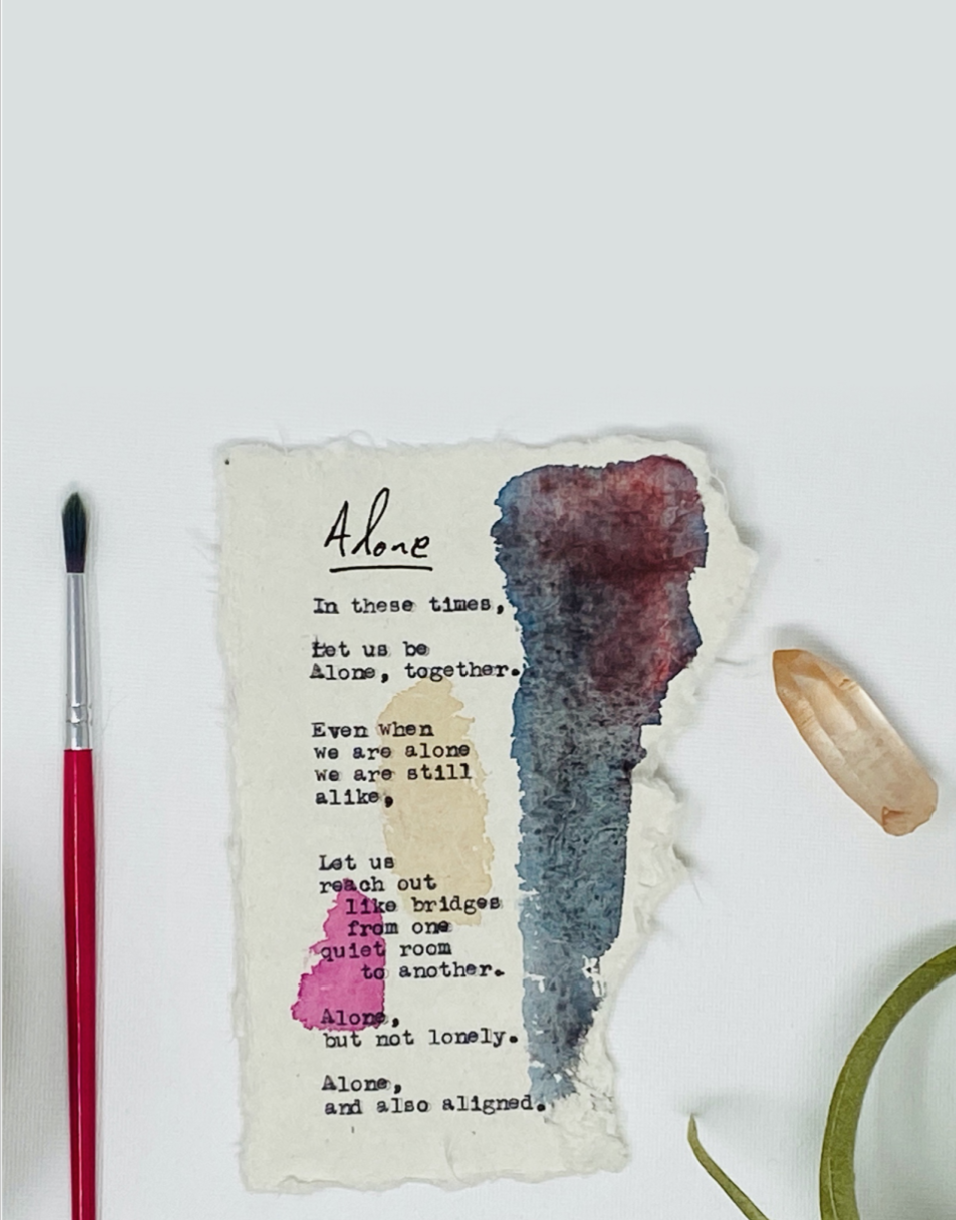 Alone
In these times,
Let us be
Alone, together.
Even when
we are alone
we are still
alike,
Let us
reach out
like bridges
from one
quiet room
to another.
Alone,
but not lonely.
Alone,
and also aligned.